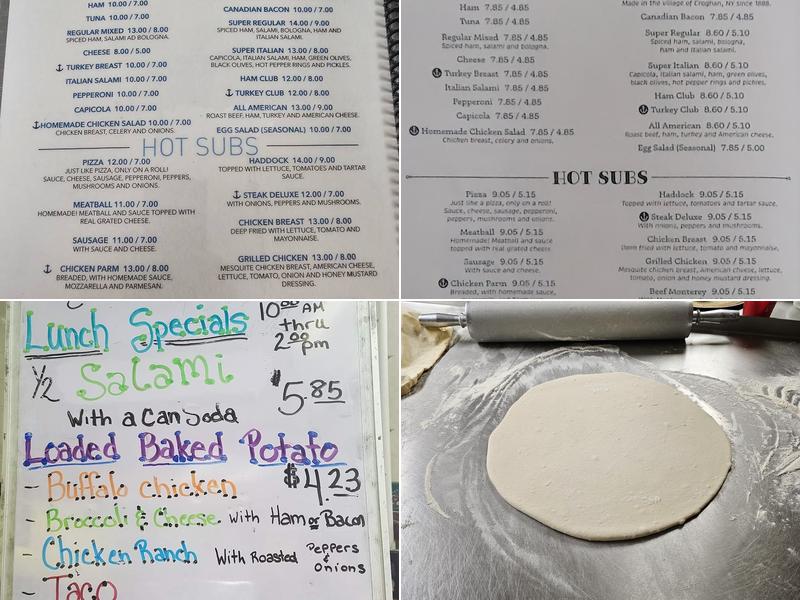 HAM 10.00/7.00
TUNA 10.00/7.00
REGULAR MIXED 13.00 / 8.00
SPICED HAM, SALAMI AD BOLOGNA.
CHEESE 8.00/5.00
TURKEY BREAST 10.00 / 7.00
ITALIAN SALAMI 10.00 / 7.00
PEPPERONI 10.00 / 7.00
CAPICOLA 10.00/7.00
HOMEMADE CHICKEN SALAD 10.00 / 7.00
CHICKEN BREAST, CELERY AND ONIONS.
CANADIAN BACON 10.00 / 7.00
SUPER REGULAR 14.00 / 9.00
SPICED HAM, SALAMI, BOLOGNA, HAM AND
ITALIAN SALAMI.
SUPER ITALIAN 13.00 / 8.00
CAPICOLA, ITALIAN SALAMI, HAM, GREEN OLIVES,
BLACK OLIVES, HOT PEPPER RINGS AND PICKLES.
HAM CLUB 12.00 / 8.00
TURKEY CLUB 12.00 / 8.00
ALL AMERICAN 13.00 / 9.00
ROAST BEEF, HAM, TURKEY AND AMERICAN CHEESE.
EGG SALAD (SEASONAL) 10.00 / 7.00
HOT SUBS
PIZZA 12.00 / 7.00
JUST LIKE PIZZA, ONLY ON A ROLL!
SAUCE, CHEESE, SAUSAGE, PEPPERONI, PEPPERS,
MUSHROOMS AND ONIONS.
MEATBALL 11.00 / 7.00
HOMEMADE! MEATBALL AND SAUCE TOPPED WITH
REAL GRATED CHEESE.
SAUSAGE 11.00 / 7.00
WITH SAUCE AND CHEESE.
CHICKEN PARM 13.00 / 8.00
BREADED, WITH HOMEMADE SAUCE,
MOZZARELLA AND PARMESAN.
HADDOCK 14.00 / 9.00
TOPPED WITH LETTUCE, TOMATOES AND TARTAR
SAUCE.
STEAK DELUXE 12.00 / 7.00
WITH ONIONS, PEPPERS AND MUSHROOMS.
CHICKEN BREAST 13.00 / 8.00
DEEP FRIED WITH LETTUCE, TOMATO AND
MAYONNAISE.
GRILLED CHICKEN 13.00 / 8.00
MESQUITE CHICKEN BREAST, AMERICAN CHEESE,
LETTUCE, TOMATO, ONION AND HONEY MUSTARD
DRESSING.
Ham 7.85 / 4.85
Tuna 7.85 / 4.85
Regular Mixed 7.85 / 4.85
Spiced ham, salami and bologna.
Cheese 7.85 / 4.85
Turkey Breast 7.85 / 4.85
Italian Salami 7.85 / 4.85
Pepperoni 7.85 / 4.85
Capicola 7.85 / 4.85
Homemade Chicken Salad 7.85 / 4.85
Chicken breast, celery and onions.
Made in the village of Croghan, NY since 1888.
Canadian Bacon 7.85 / 4.85
Super Regular 8.60 / 5.10
Spiced ham, salami, bologna,
ham and Italian salami.
Super Italian 8.60 / 5.10
Capicola, Italian salami, ham, green olives,
black olives, hot pepper rings and pickles.
Ham Club 8.60 / 5.10
Turkey Club 8.60 / 5.10
All American 8.60 / 5.10
Roast beef, ham, turkey and American cheese.
Egg Salad (Seasonal) 7.85 / 5.00
HOT SUBS
Pizza 9.05 / 5.15
Just like a pizza, only on a roll!
Sauce, cheese, sausage, pepperoni,
peppers, mushrooms and onions.
Meatball 9.05 / 5.15
Homemade! Meatball and sauce
topped with real grated cheese.
Sausage 9.05 / 5.15
With sauce and cheese.
Chicken Parm 9.05 / 5.15
Breaded, with homemade sauce,
Haddock 9.05 / 5.15
Topped with lettuce, tomatoes and tartar sauce.
Steak Deluxe 9.05 / 5.15
With onions, peppers and mushrooms.
Chicken Breast 9.05 / 5.15
Deep fried with lettuce, tomato and mayonnaise.
Grilled Chicken 9.05 / 5.15
Mesquite chicken breast, american cheese, lettuce,
tomato, onion and honey mustard dressing.
Beef Monterey 9.05 / 5.15
Lunch Specials 10:00 AM
thru
2:00 pm
1/2 Salami $5.85
With a Can Soda
Loaded Baked Potato
- Buffalo chicken $4.23
- Broccoli & Cheese with Ham or Bacon
- Chicken Ranch With Roasted Peppers & Onions
- Taco